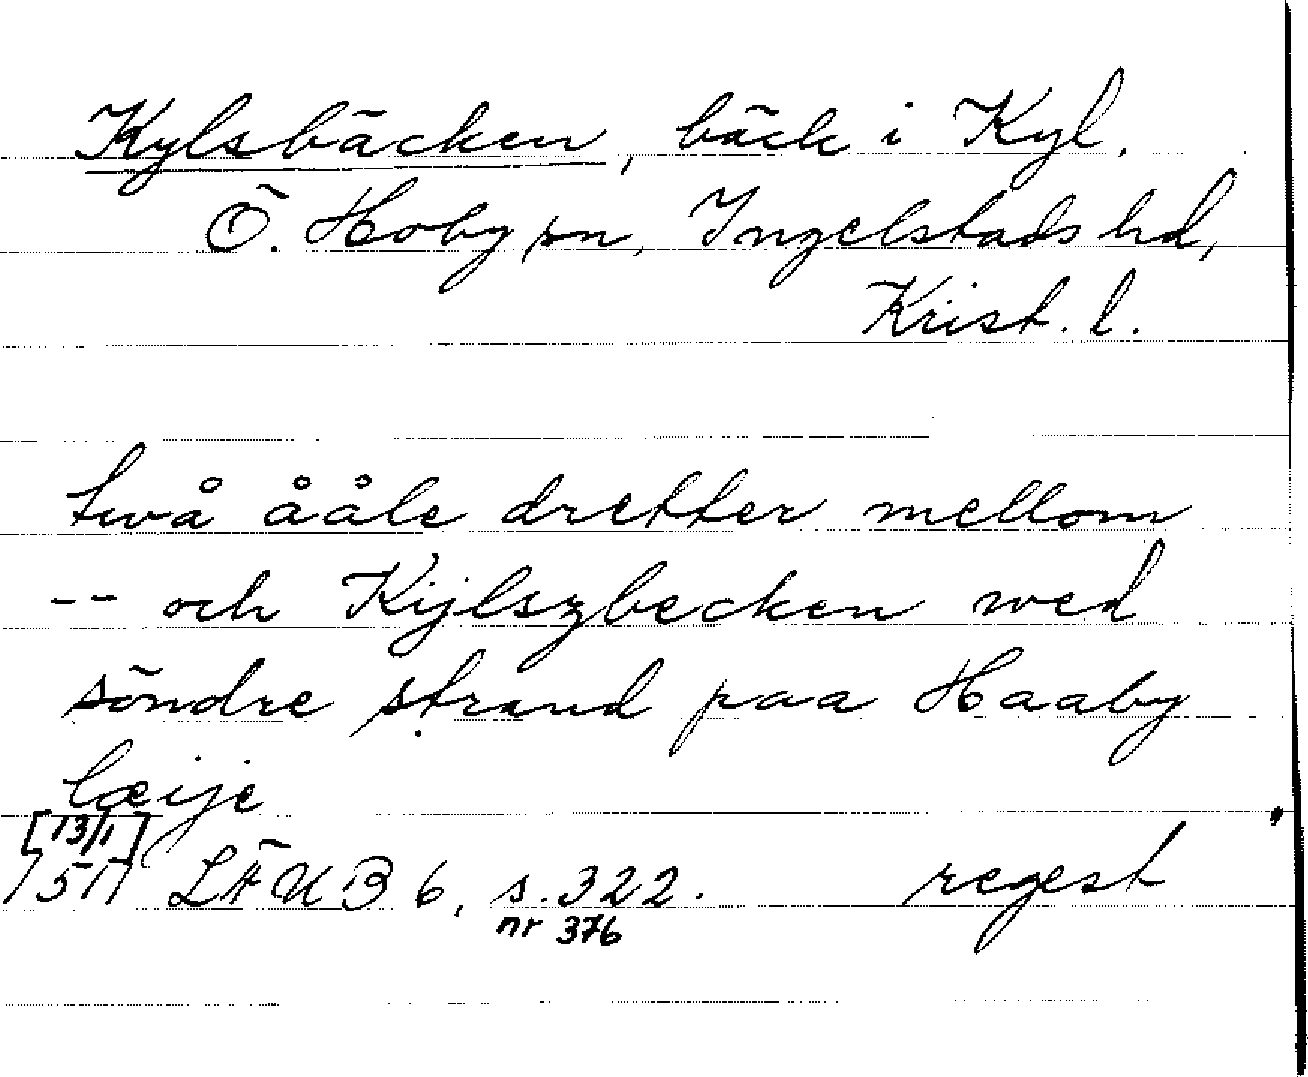 Kylsbäcken, bäck i Kyl,
Ö. Hoby sn, Ingelstads hd,
Krist. l.
twå ååle dretter mellom
-- och Kijlszbecken wed
söndre strand paa Haaby
læije
[13/1]
1517 LÄUB 6, s. 322. regest
nr 376